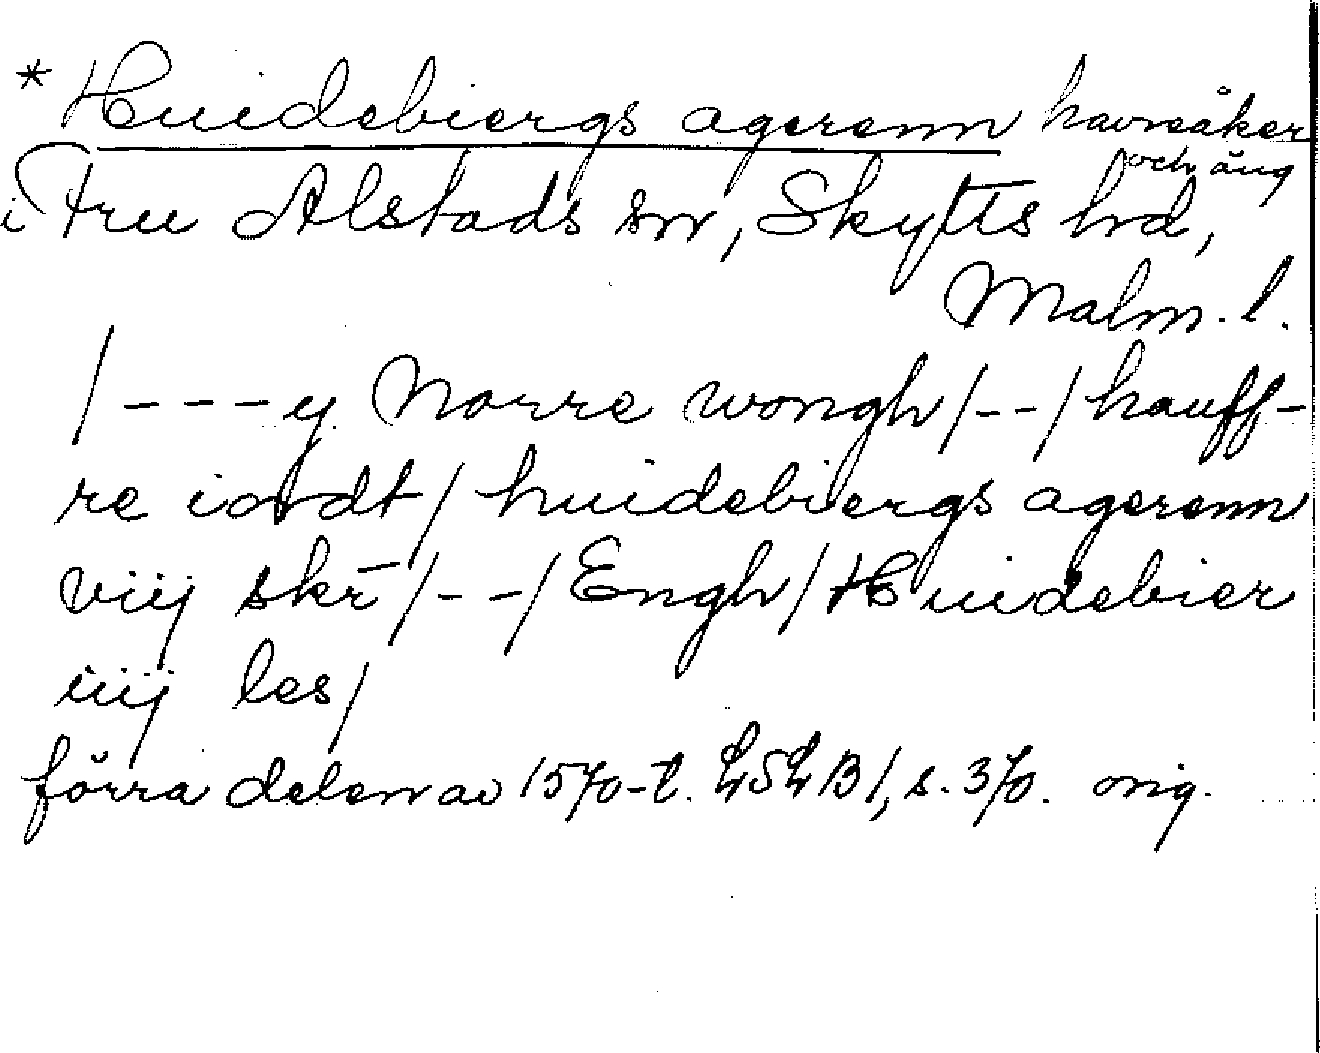 * Huidebiergs agerenn havreåker
och äng
i Fru Alstads sn, Skytts hd,
Malm. l.
/---y Norre wongh/--/hauff-
re iordt/huidebiergs agerenn
viij skr̄/--/Engh/Huidebier
iiij les/
förra delen av 1570-t. LSLB1, s. 370. orig.